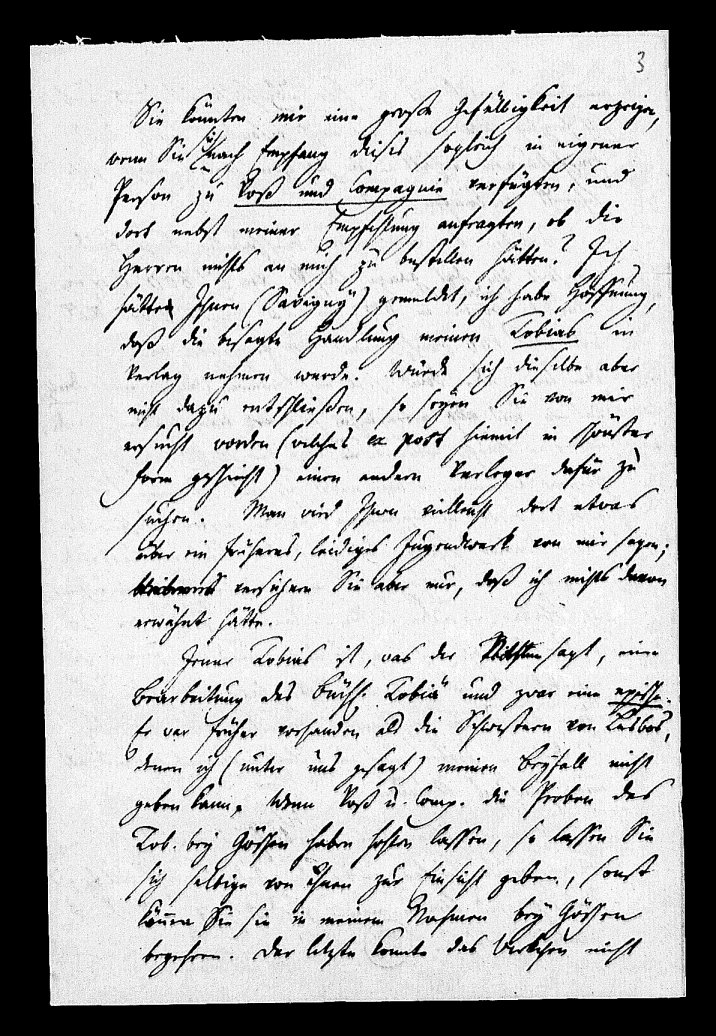 3
Sie könnten mir eine große Gefälligkeit erzeigen,
wenn Sie sich nach Empfang dieses sogleich in eigener
Person zu Voß und Compagnie verfügten, und
dort nebst meiner Empfehlung anfragten, ob die
Herren nichts an mich zu bestellen hätten? Ich
hätte Ihnen (Savigny) gemeldet, ich habe Hoffnung,
daß die besagte Handlung meinen Tobias in
Verlag nehmen werde. Würde sich dieselbe aber
nicht dazu entschließen, so seyen Sie von mir
ersucht worden (welches ex post hiemit in schönster
Form geschieht) einen andern Verleger dafür zu
suchen. Man wird Ihnen vielleicht dort etwas
über ein früheres, leidiges Jugendwerk von mir sagen;
versichern Sie aber nur, daß ich nichts davon
erwähnt hätte.
Jener Tobias ist, was der sagt, eine
Bearbeitung des Buchs Tobiä und zwar eine epische.
Er war früher vorhanden als die Schwestern von Lesbos,
denen ich (unter uns gesagt) meinen Beyfall nicht
geben kann. Wenn Voß u. Comp. die Proben des
Tob. bey Göschen haben holen lassen, so lassen Sie
sich selbige von Ihnen zur Einsicht geben, sonst
können Sie sie in meinem Nahmen bey Göschen
begehren. Der letzte konnte das Werkchen nicht